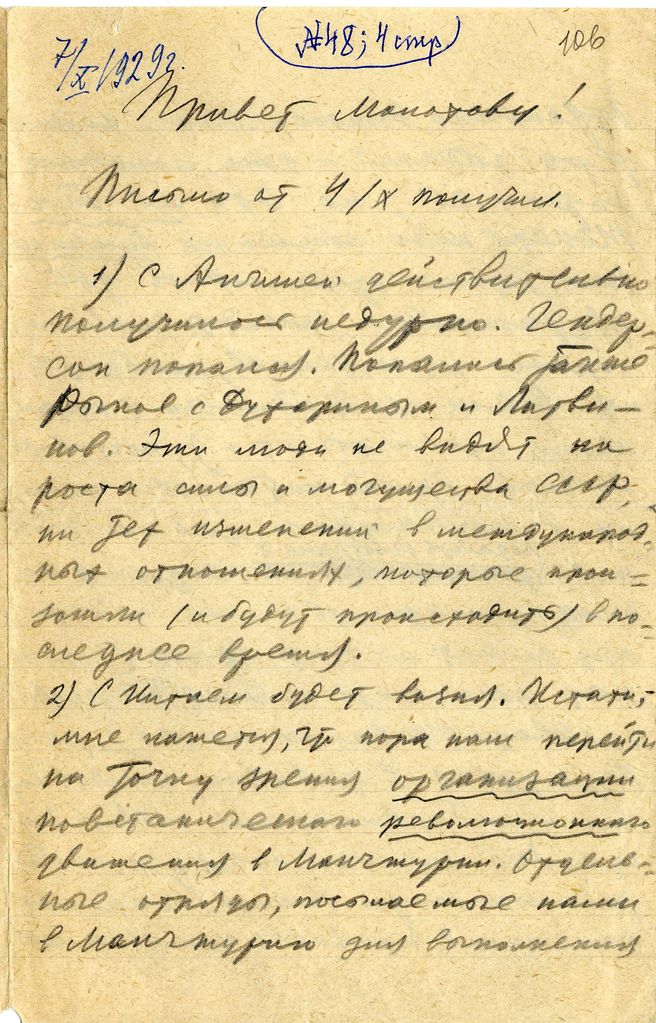 7/X 1929г.
№48; 4 стр
106
Привет Молотову!
Письмо от 4/X получил.
1) С Англией действительно
получилось недурно. Гендер-
сон попался. Попались также
Рыков с Бухариным и Литви-
нов. Эти люди не видят ни
роста силы и могущества СССР,
ни тех изменений в международ-
ных отношениях, которые прои-
зошли (и будут происходить) в по-
следнее время.
2) С Китаем будет возня. Кстати,
мне кажется, что пора нам перейти
на точку зрения организации
повстанческого революционного
движения в Манчжурии. Отдель-
ные отряды, посылаемые нами
в Манчжурию для выполнения